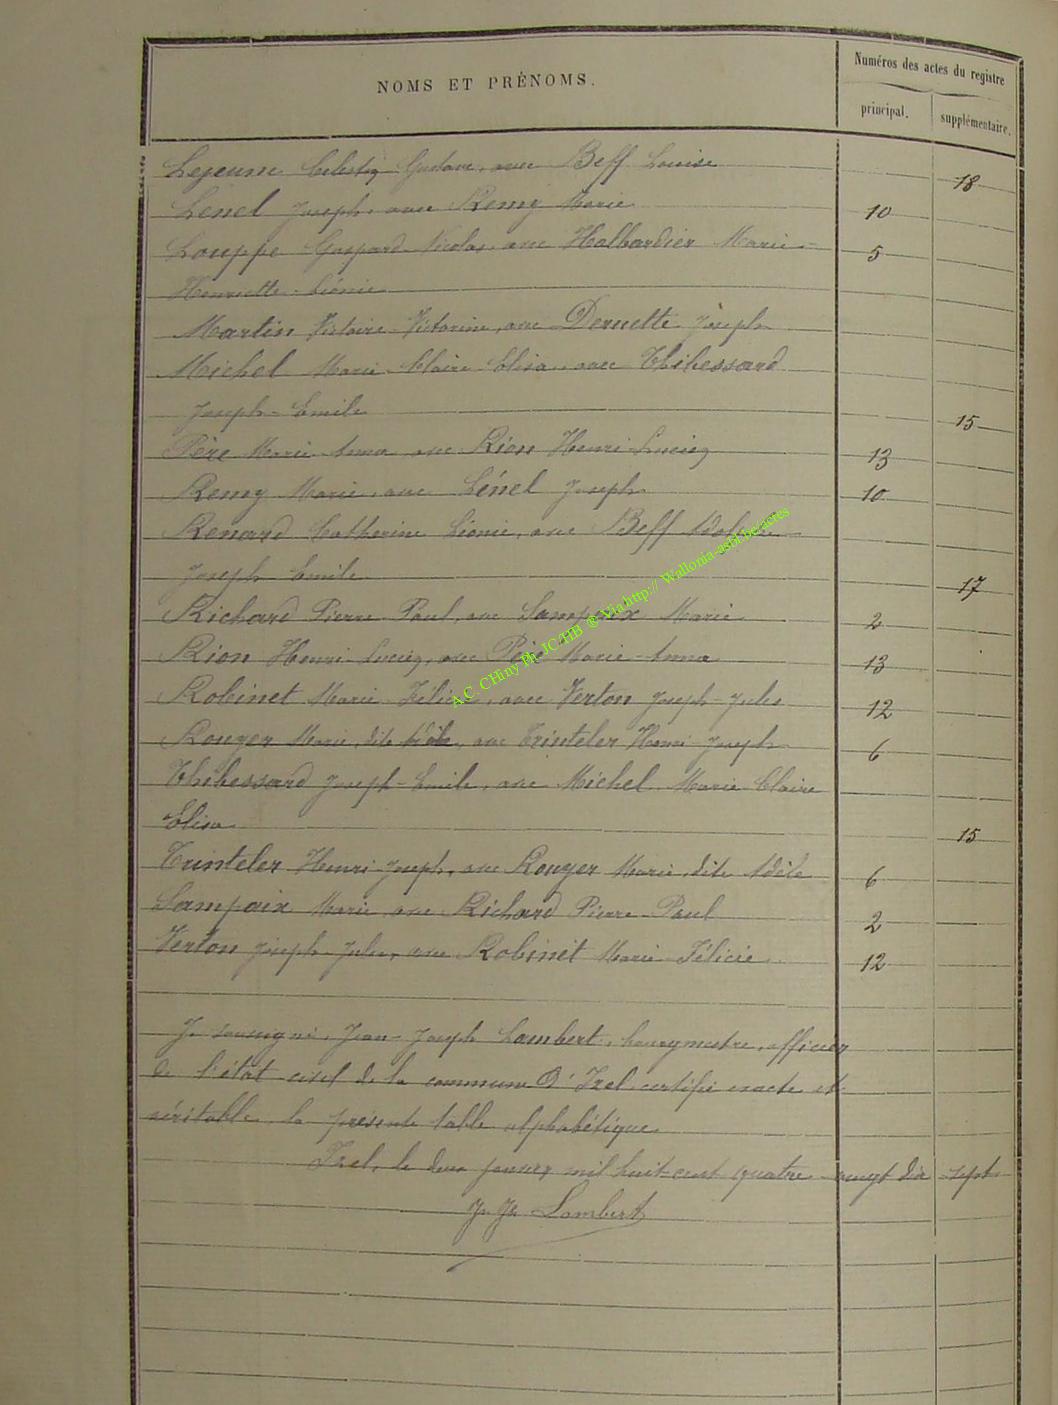 NOMS ET PRÉNOMS.
Numéros des actes du registre
principal.
supplémentaire.
Lejeune Célestin Gustave, avec Beff Louise 18
Lenel Joseph, avec Remy Marie 10
Louppe Gaspard Nicolas, avec Halbardier Marie 5
Henriette-Léonie
Martin Victoire-Victorine, avec Dernette Joseph
Michel Marie Claire Elisa, avec Thibessard
Joseph-Emile 15
Père Marie Anna avec Rion Henri-Lucien 13
Remy Marie, avec Lénel Joseph 10
Renard Catherine Léonie, avec Beff Adolphe
Joseph Emile 17
Richard Pierre Paul, avec Sampaix Marie 2
Rion Henri-Lucien, avec Père Marie-Anna 13
Robinet Marie Félicie, avec Verton Joseph-Jules 12
Rouyer Marie, dite Adèle, avec Trinteler Henri Joseph 6
Thibessard Joseph-Emile, avec Michel Marie Claire
Elisa 15
Trinteler Henri Joseph, avec Rouyer Marie, dite Adèle 6
Sampaix Marie avec Richard Pierre Paul 2
Verton Joseph Jules, avec Robinet Marie Félicie 12
Je soussigné, Jean-Joseph Lambert, bourgmestre, officier
de l'état civil de la commune d'Izel certifie exacte et
véritable la présente table alphabétique
Izel, le deux janvier mil huit-cent quatre-vingt dix sept
J. J. Lambert
A.C. CHiny Ph JC/HB ® Via http:// Wallonia-asbl.be/acres